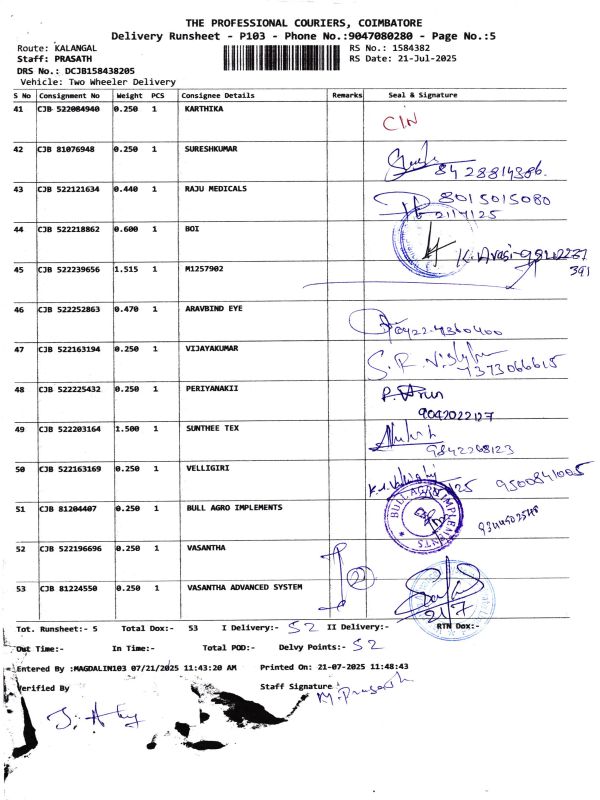 THE PROFESSIONAL COURIERS, COIMBATORE
Delivery Runsheet - P103 - Phone No.:9047080280 - Page No.:5
Route: KALANGAL RS No.: 1584382
Staff: PRASATH RS Date: 21-Jul-2025
DRS No.: DCJB158438205
Vehicle: Two Wheeler Delivery
S No Consignment No Weight PCS Consignee Details Remarks Seal & Signature
41 CJB 522084940 0.250 1 KARTHIKA CIN
42 CJB 81076948 0.250 1 SURESHKUMAR 8428814386.
43 CJB 522121634 0.440 1 RAJU MEDICALS 8015015080
21/7/25
44 CJB 522218862 0.600 1 BOI
391
45 CJB 522239656 1.515 1 M1257902
46 CJB 522252863 0.470 1 ARAVBIND EYE 0422-4360400
47 CJB 522163194 0.250 1 VIJAYAKUMAR 7373066615
48 CJB 522225432 0.250 1 PERIYANAKII P. Arun
9042022127
49 CJB 522203164 1.500 1 SUNTHEE TEX 9842268123
50 CJB 522163169 0.250 1 VELLIGIRI 9500841005
51 CJB 81204407 0.250 1 BULL AGRO IMPLEMENTS BULL AGRO IMPLEMENTS
52 CJB 522196696 0.250 1 VASANTHA 2
53 CJB 81224550 0.250 1 VASANTHA ADVANCED SYSTEM 21/7
Tot. Runsheet:- 5 Total Dox:- 53 I Delivery:- 52 II Delivery:- RTN Dox:-
Out Time:- In Time:- Total POD:- Delvy Points:- 52
Entered By :MAGDALIN103 07/21/2025 11:43:20 AM Printed On: 21-07-2025 11:48:43
Verified By Staff Signature : M. Prasath